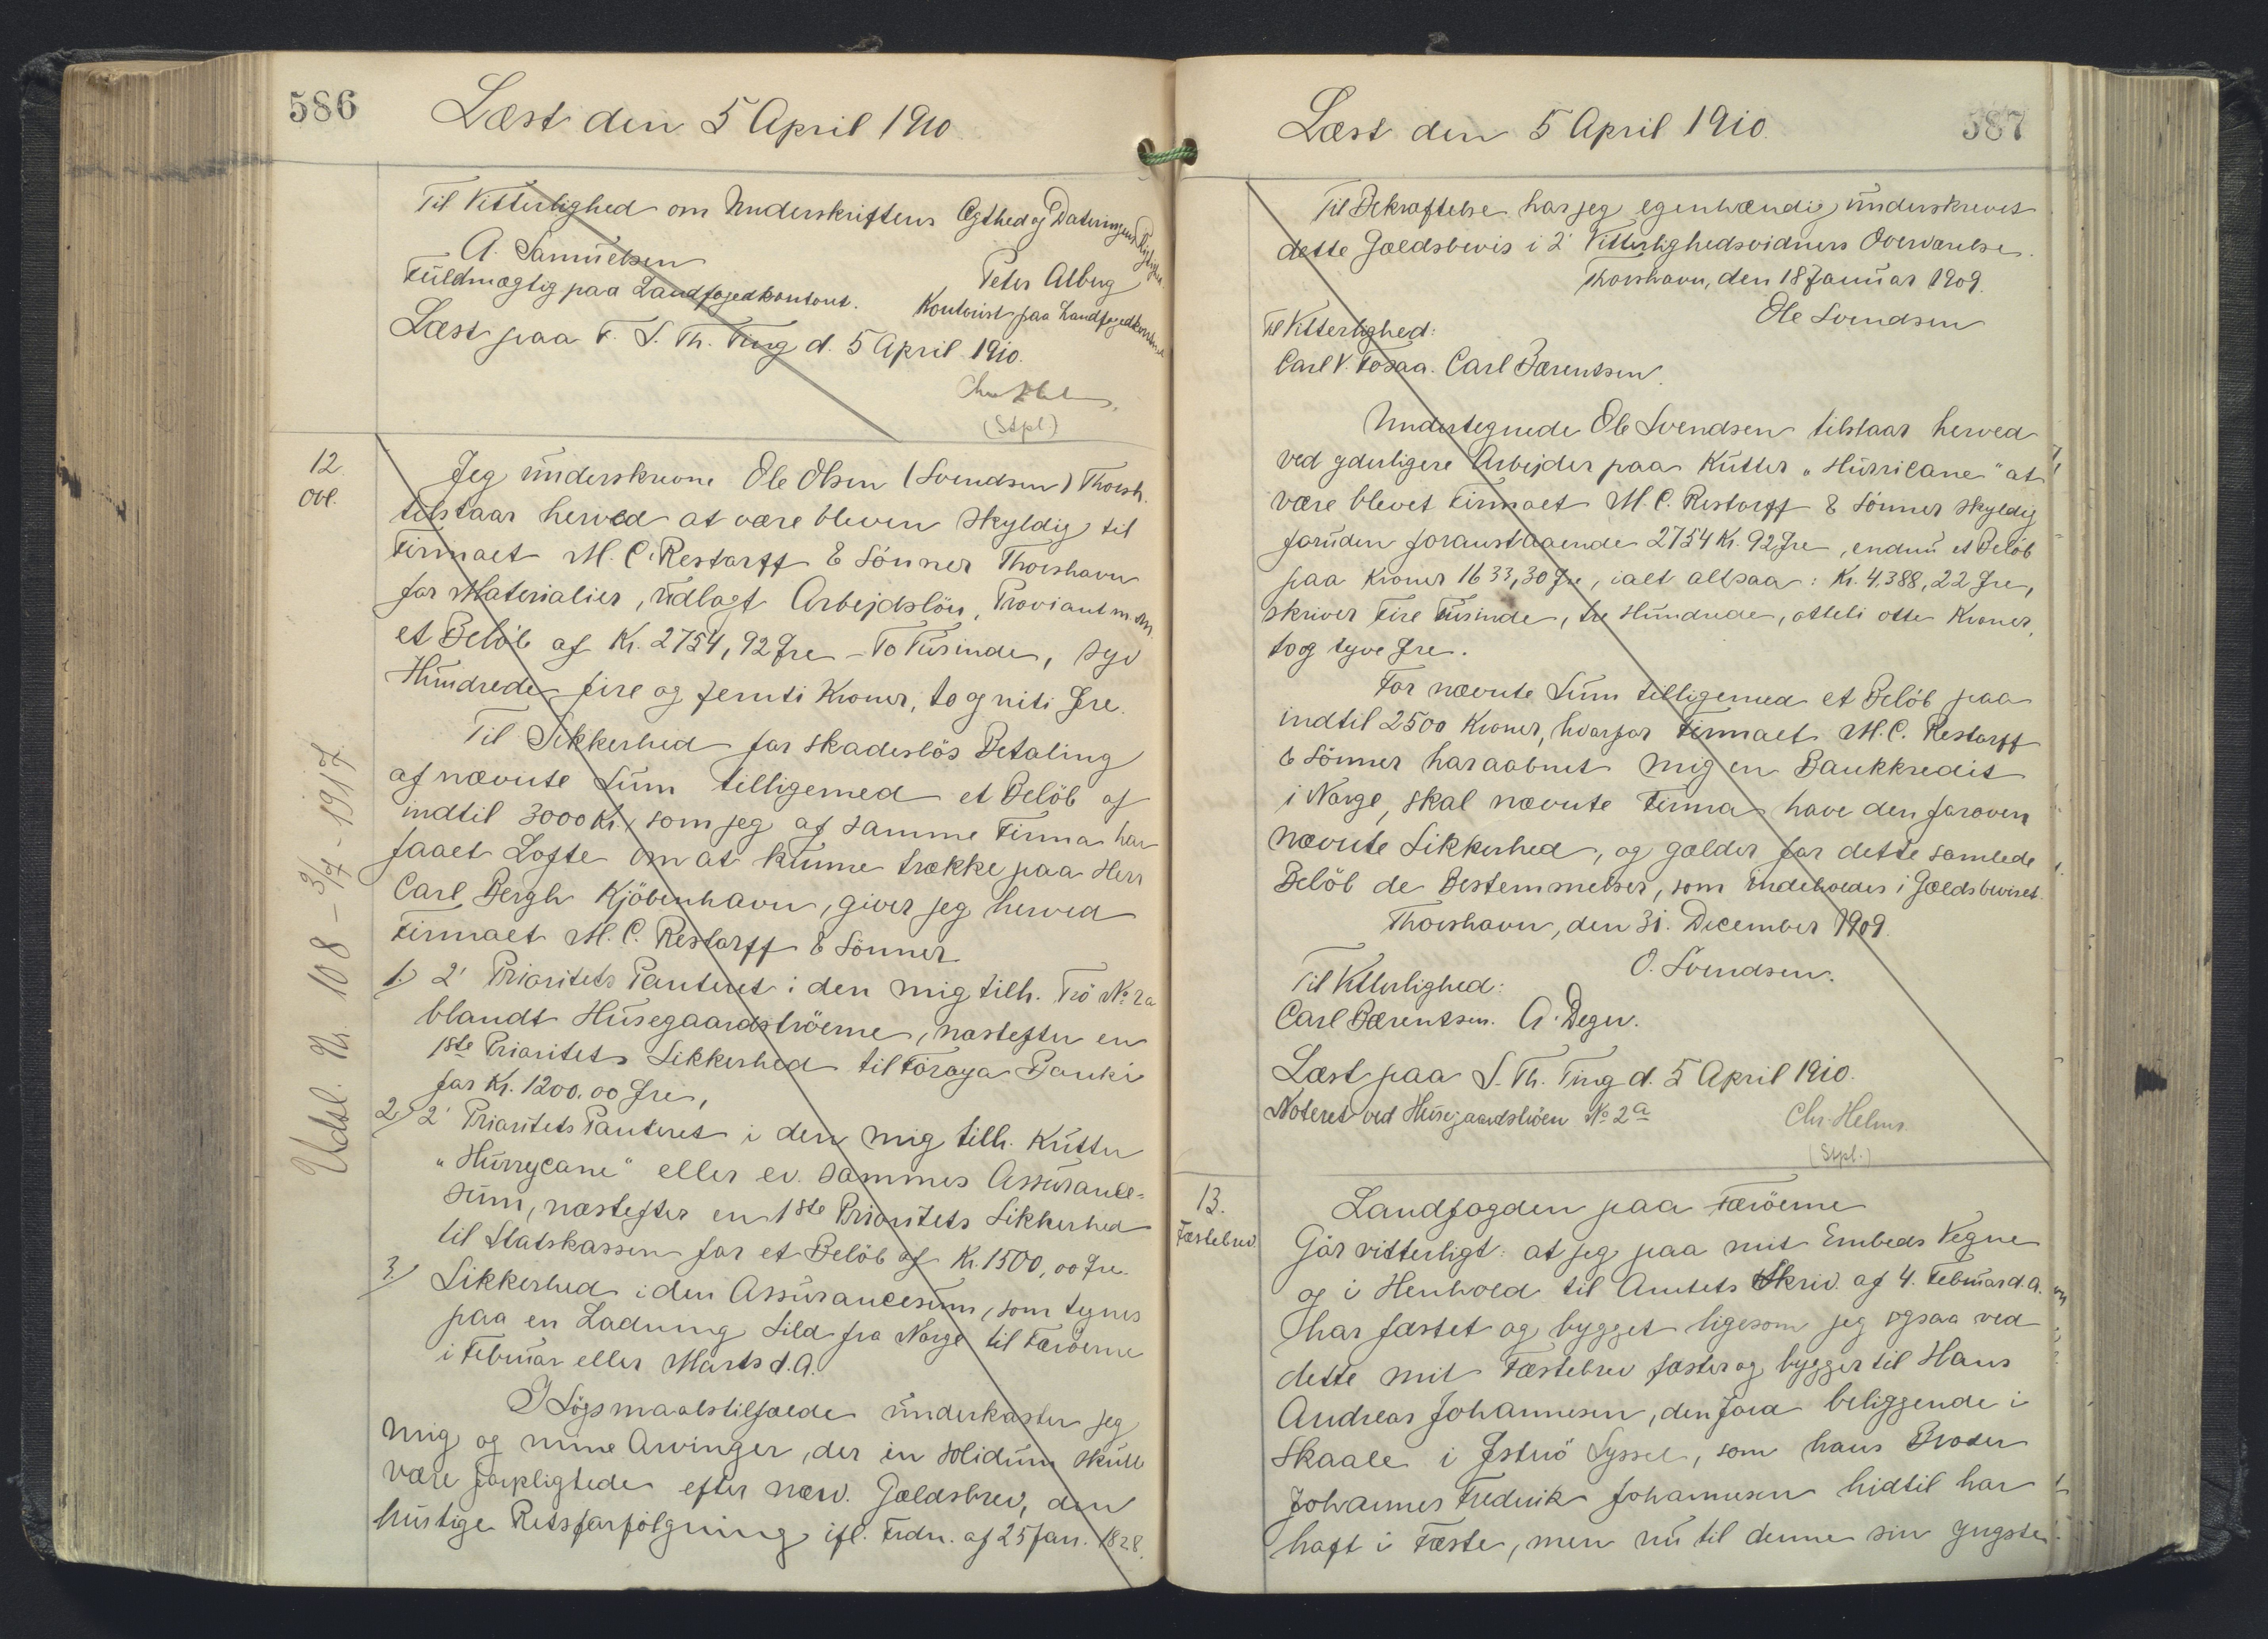 586
Læst den 5 April 1910.
Til Vitterlighed om Underskriftens Ægthed og Dateringens Rigtighed.
A. Samuelsen
Fuldmægtig paa Landfogedkontoret.
Peter Alberg
Kontorist paa Landfogedkontoret
Læst paa F. S. Th. Ting d. 5 April 1910.
(Stpl.)
12.
Ove.
Jeg underskrevne Ole Olsen (Svendsen) Thorsh.
tilstaar herved at være bleven skyldig til
Firmaet M. C. Restorff & Sönner Thorshavn
for Materialier, udlagt Arbejdslön, Proviant m.m.
et Belöb af Kr. 2754,92 Øre – To Tusinde, syv
Hundrede fire og femti Kroner, to og niti Øre.
Til Sikkerhed for skadeslös Betaling
af nævnte Sum tilligemed et Belöb af
indtil 3000 Kr., som jeg af samme Firma har
faaet Lofte om at kunne trække paa Herr
Carl Bergh Kjöbenhavn, giver jeg herved
Firmaet M. C. Restorff & Sönner
1.) 2' Prioritets Panteret i den mig tilh. Trö No 2a
blandt Husegaardströerne, næstefter en
1ste Prioritets Sikkerhed til Föroya Banki
for Kr. 1200,00 Øre,
2.) 2' Prioritets Panteret i den mig tilh. Kutter
„Hurrycane" eller ev. sammes Assurance=
sum, næstefter en 1ste Prioritets Sikkerhed
til Statskassen for et Belöb af Kr. 1500,00 Øre.
3.) Sikkerhed i den Assurancesum, som tegnes
paa en Ladning Sild fra Norge til Færöerne
i Februar eller Marts d.A.
I Sögsmaalstilfælde underkaster jeg
mig og mine Arvinger, der in solidum skulle
være forpligtede efter nærv. Gældsbrev, den
hurtige Retsforfölgning ifl. Frdn. af 25 Jan. 1828.
Udsl. Nr. 108 - 3/7 - 1917
Læst den 5 April 1910.
587
Til Bekræftelse har jeg egenhændig underskrevet
dette Gældsbevis i 2' Vitterlighedsvidners Overværelse.
Thorshavn, den 18 Januar 1909.
Ole Svendsen
Til Vitterlighed:
Carl V. Fosaa. Carl Bærentsen.
Undertegnede Ole Svendsen tilstaar herved
ved yderligere Arbejder paa Kutter „Hurricane" at
være blevet Firmaet M. C. Restorff & Sönner skyldig
foruden foranstaaende 2754 Kr. 92 Øre, endnu et Belöb
paa Kroner 1633,30 Øre, ialt altsaa: Kr. 4.388,22 Øre,
skriver Fire Tusinde, tre Hundrede, otteti otte Kroner,
to og tyve Øre.
For nævnte Sum tilligemed et Belöb paa
indtil 2500 Kroner, hvorfor Firmaet M. C. Restorff
& Sönner har aabnet mig en Bankkredit
i Norge, skal nævnte Firma have den foroven
nævnte Sikkerhed, og gælder for dette samlede
Belöb de Bestemmelser, som indeholdes i Gældsbeviset.
Thorshavn, den 31. December 1909.
O. Svendsen.
Til Vitterlighed:
Carl Bærentsen. A. Degn.
Læst paa S. Th. Ting d. 5 April 1910.
Noteret ved Husegaardströen No 2a
Chr. Helms.
(Stpl.)
13.
Fæstebrev.
Landfogden paa Færöerne
Gör vitterligt: at jeg paa mit Embeds Vegne
og i Henhold til Amtets Skriv. af 4. Februar d.A.
har fæstet og bygget ligesom jeg ogsaa ved
dette mit Fæstebrev fæster og bygger til Hans
Andreas Johannesen, den Jord beliggende i
Skaale i Øströ Syssel, som hans Broder
Johannes Fredrik Johannesen hidtil har
haft i Fæste, men nu til denne sin yngste